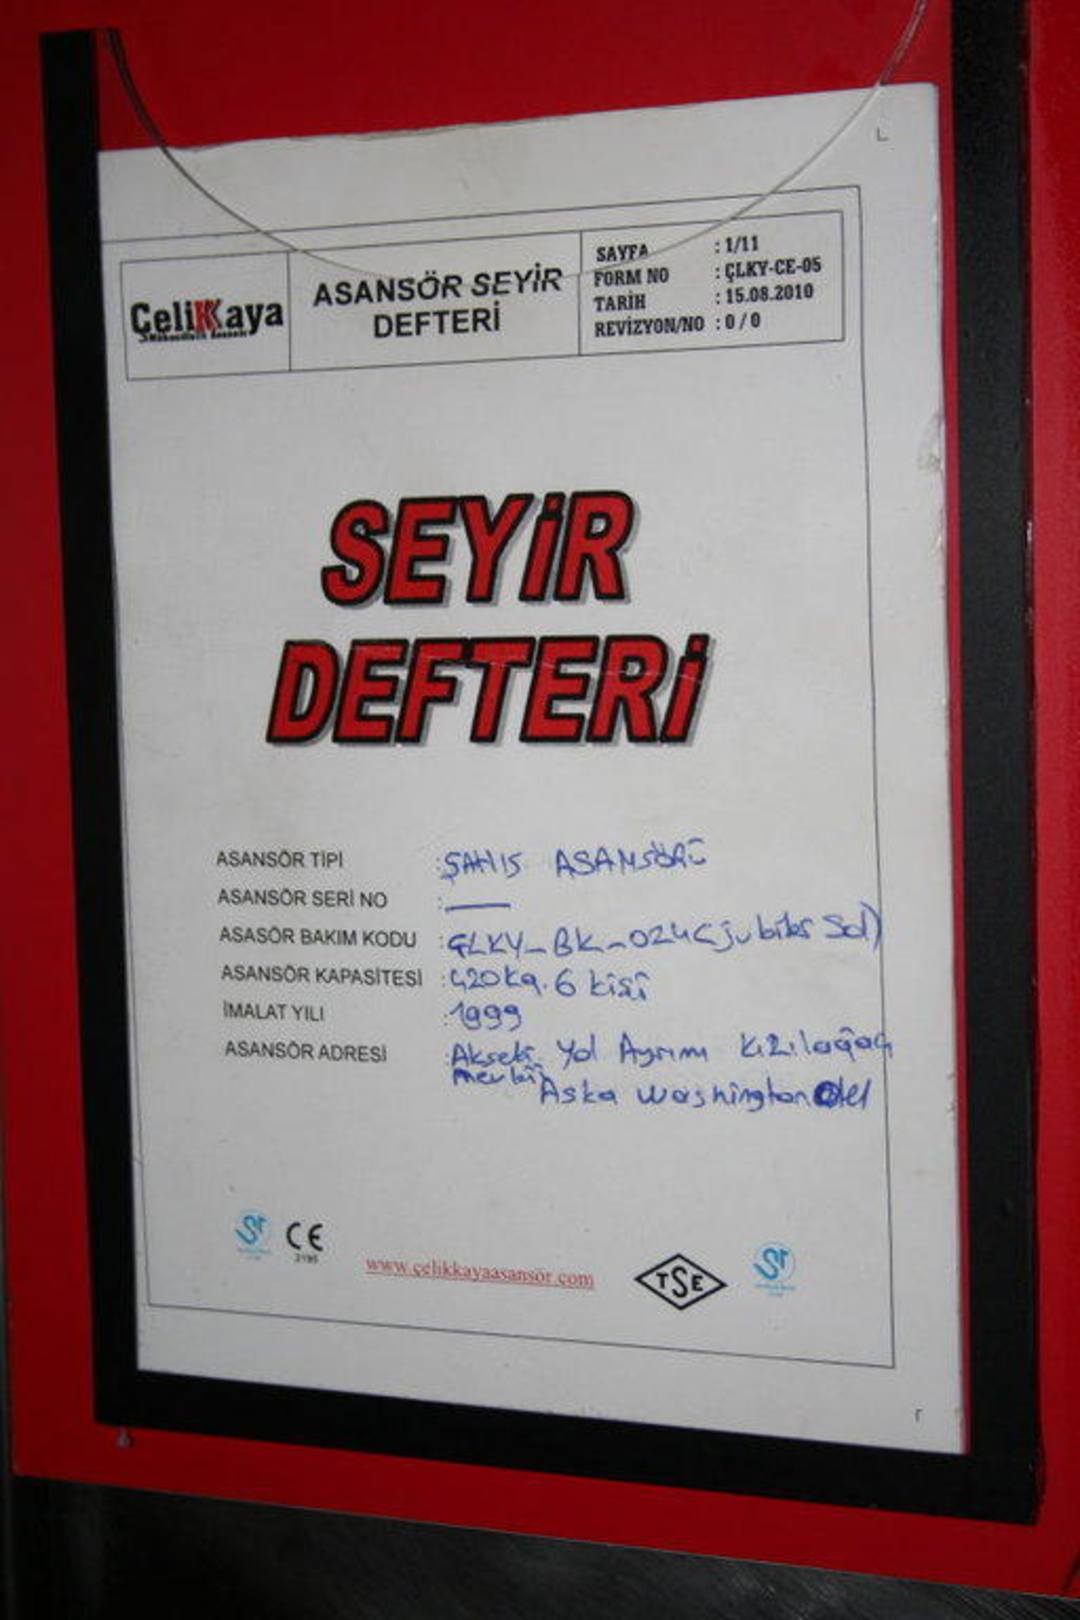 ÇeliKKaya
ASANSÖR SEYİR
DEFTERİ
SAYFA : 1/11
FORM NO : ÇLKY-CE-05
TARİH : 15.08.2010
REVİZYON/NO : 0 / 0
SEYİR
DEFTERİ
ASANSÖR TİPİ : ŞAHIS ASANSÖRÜ
ASANSÖR SERİ NO : —
ASASÖR BAKIM KODU : ÇLKY_BK_024 (jubiler Sol)
ASANSÖR KAPASİTESİ : 420 kg. 6 kişi
İMALAT YILI : 1999
ASANSÖR ADRESİ : Akseki Yol Ayrımı Kızılağaç
mevkii Aska Washington Otel
CE
2195
www.çelikkayaasansör.com
TSE